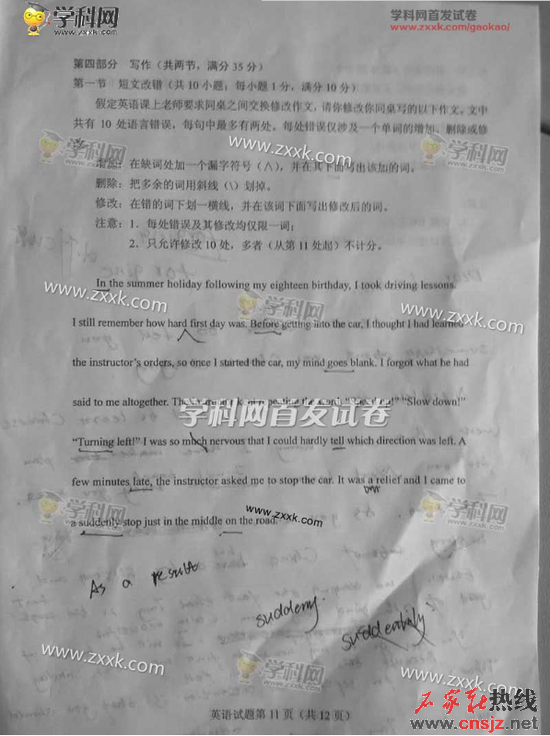 学科网
www.zxxk.com
学科网首发试卷
www.zxxk.com/gaokao/
第四部分 写作（共两节，满分 35 分）
第一节 短文改错（共 10 小题，每小题 1 分，满分 10 分）
假定英语课上老师要求同桌之间交换修改作文，请你修改你同桌写的以下作文。文中
共有 10 处语言错误，每句中最多有两处。每处错误仅涉及一个单词的增加、删除或修
学科网
www.zxxk.com
增加：在缺词处加一个漏字符号（∧），并在其下面写出该加的词。
删除：把多余的词用斜线（\）划掉。
修改：在错的词下划一横线，并在该词下面写出修改后的词。
注意：1．每处错误及其修改均仅限一词；
2．只允许修改 10 处，多者（从第 11 处起）不计分。
In the summer holiday following my eighteen birthday, I took driving lessons.
www.zxxk.com
学科网
www.zxxk.com
I still remember how hard first day was. Before getting into the car, I thought I had learned
the instructor's orders, so once I started the car, my mind goes blank. I forgot what he had
said to me altogether. The "Slow down!"
学科网首发试卷
"Turning left!" I was so much nervous that I could hardly tell which direction was left. A
few minutes late, the instructor asked me to stop the car. It was a relief and I came to
学科网
www.zxxk.com
学科网
a suddenly stop just in the middle on the road.
As a result
suddeny
学科网
www.zxxk.com
学科网
www.zxxk.com
英语试题第 11 页（共 12 页）
石家庄热线
www.cnsjz.net